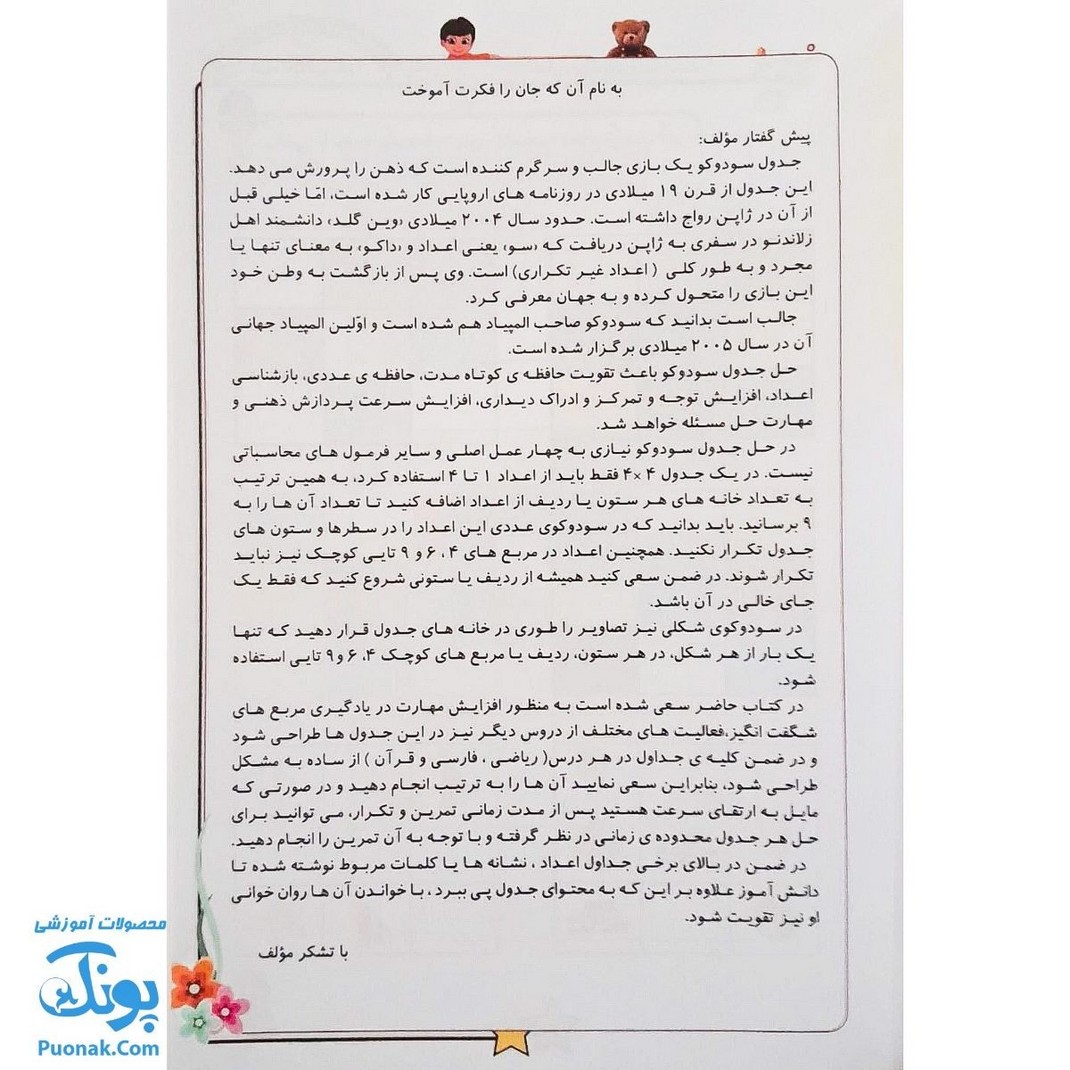 به نام آن که جان را فکرت آموخت
پیش گفتار مؤلف:
جدول سودوکو یک بازی جالب و سرگرم کننده است که ذهن را پرورش می دهد.
این جدول از قرن ۱۹ میلادی در روزنامه های اروپایی کار شده است، امّا خیلی قبل
از آن در ژاپن رواج داشته است. حدود سال ۲۰۰۴ میلادی «وین گلد» دانشمند اهل
زلاندنو در سفری به ژاپن دریافت که «سو» یعنی اعداد و «داکو» به معنای تنها یا
مجرد و به طور کلی ( اعداد غیر تکراری) است. وی پس از بازگشت به وطن خود
این بازی را متحول کرده و به جهان معرفی کرد.
جالب است بدانید که سودوکو صاحب المپیاد هم شده است و اوّلین المپیاد جهانی
آن در سال ۲۰۰۵ میلادی برگزار شده است.
حل جدول سودوکو باعث تقویت حافظه ی کوتاه مدت، حافظه ی عددی، بازشناسی
اعداد، افزایش توجه و تمرکز و ادراک دیداری، افزایش سرعت پردازش ذهنی و
مهارت حل مسئله خواهد شد.
در حل جدول سودوکو نیازی به چهار عمل اصلی و سایر فرمول های محاسباتی
نیست. در یک جدول ۴×۴ فقط باید از اعداد ۱ تا ۴ استفاده کرد، به همین ترتیب
به تعداد خانه های هر ستون یا ردیف از اعداد اضافه کنید تا تعداد آن ها را به
۹ برسانید. باید بدانید که در سودوکوی عددی این اعداد را در سطرها و ستون های
جدول تکرار نکنید. همچنین اعداد در مربع های ۴، ۶ و ۹ تایی کوچک نیز نباید
تکرار شوند. در ضمن سعی کنید همیشه از ردیف یا ستونی شروع کنید که فقط یک
جای خالی در آن باشد.
در سودوکوی شکلی نیز تصاویر را طوری در خانه های جدول قرار دهید که تنها
یک بار از هر شکل، در هر ستون، ردیف یا مربع های کوچک ۴، ۶ و۹ تایی استفاده
شود.
در کتاب حاضر سعی شده است به منظور افزایش مهارت در یادگیری مربع های
شگفت انگیز،فعالیت های مختلف از دروس دیگر نیز در این جدول ها طراحی شود
و در ضمن کلیه ی جداول در هر درس( ریاضی ، فارسی و قرآن ) از ساده به مشکل
طراحی شود، بنابراین سعی نمایید آن ها را به ترتیب انجام دهید و در صورتی که
مایل به ارتقای سرعت هستید پس از مدت زمانی تمرین و تکرار، می توانید برای
حل هر جدول محدوده ی زمانی در نظر گرفته و با توجه به آن تمرین را انجام دهید.
در ضمن در بالای برخی جداول اعداد ، نشانه ها یا کلمات مربوط نوشته شده تا
دانش آموز علاوه بر این که به محتوای جدول پی ببرد ، با خواندن آن ها روان خوانی
او نیز تقویت شود.
با تشکر مؤلف
محصولات آموزشی
پونک
Puonak.Com